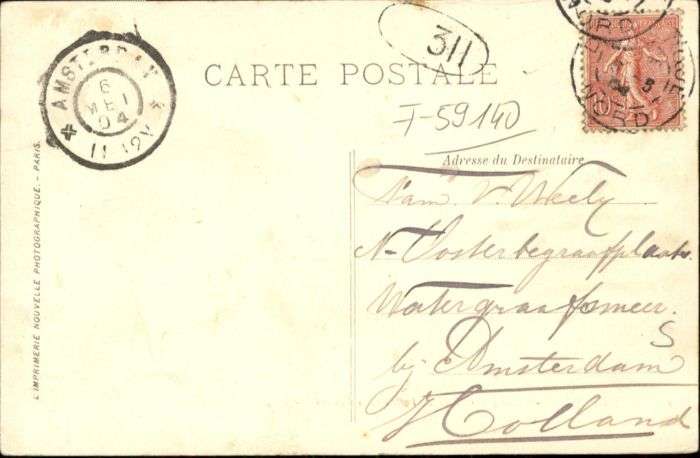 311
CARTE POSTALE
F-59140
AMSTERDAM
6
MEI
04
11-12V
NORD
10
NORD
Adresse du Destinataire
Fam. V. Weely
N-Oosterbegraafplaats
Watergraafsmeer
S
by Amsterdam
Holland
L'IMPRIMERIE NOUVELLE PHOTOGRAPHIQUE. - PARIS.